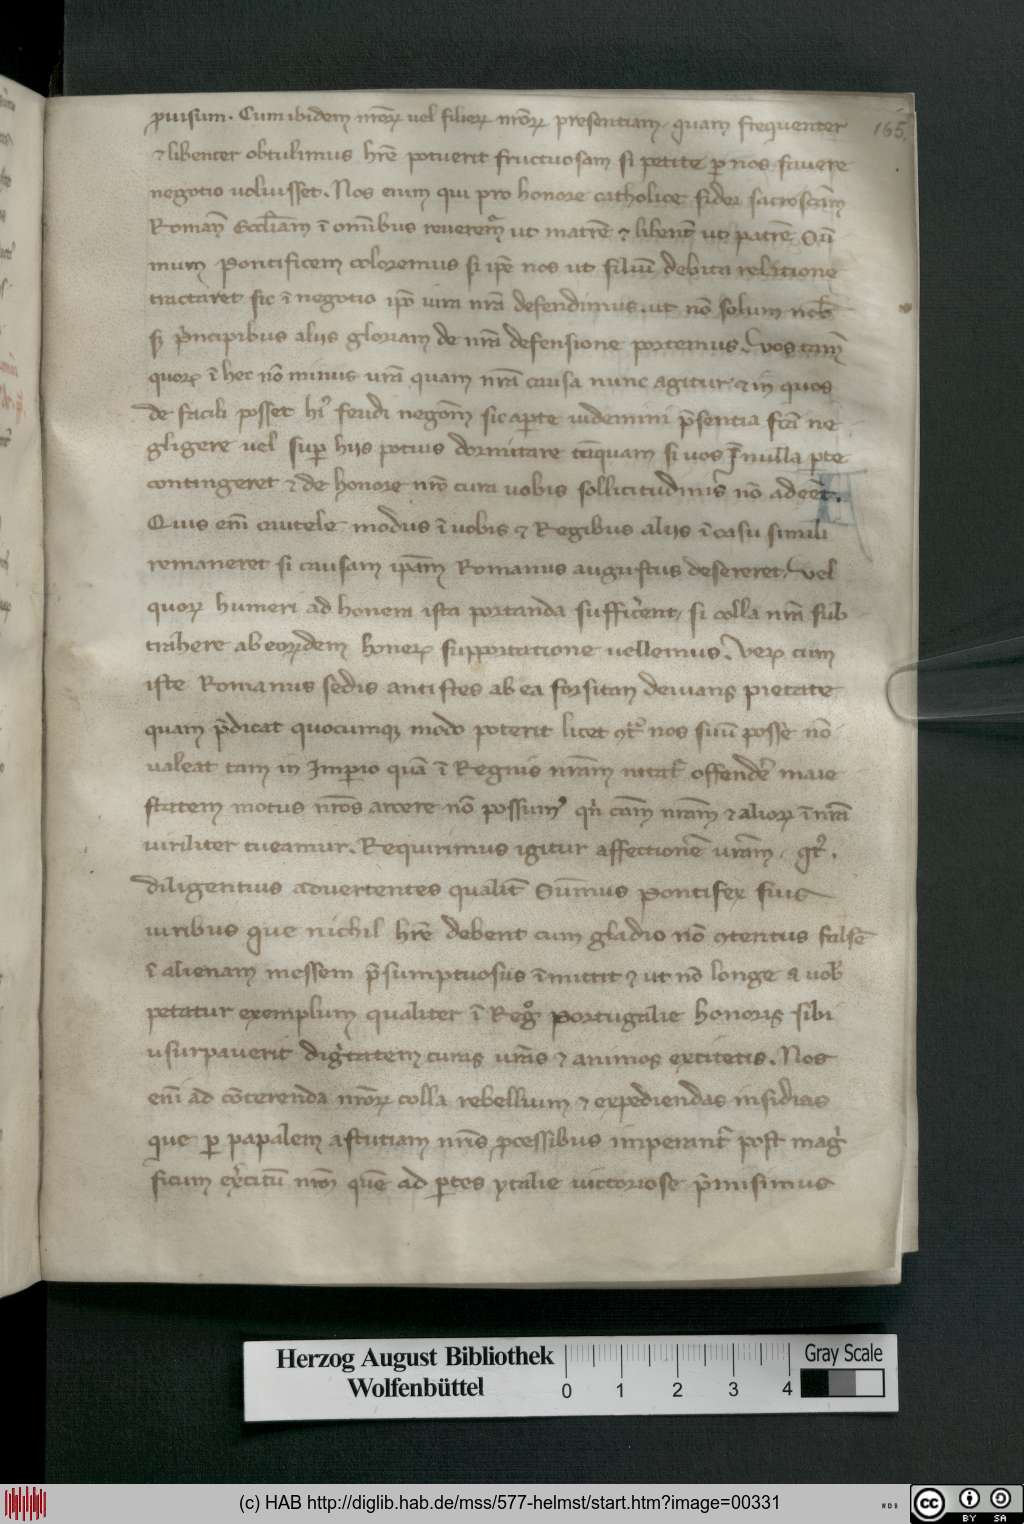 ꝓuisum. Cum ibidem nr̄oꝝ uel filioꝝ nr̄oꝝ presentiam, quam frequenter
165.
⁊ libenter obtulimus hr̄e potuerit fructuosam si petite ꝑ nos fauere
negotio uoluisset. Nos enim qui pro honore catholice fidei sacroscām
Romaꝫ Ecc̄liam ī om̄ibus reuerem̄ ut matrē ⁊ libent̄ ut patrē Sū
mum Pontificem coleremus si ip̄e nos ut filiū debita relatione
tractaret sic ī negotio ip̄o iura nr̄a defendimus. ut nō solum nob̄
sꝫ p̄ncipibus aliis gloriam de nr̄a defensione portemus. Vos tam̄
quoꝝ ī hec nō minus ur̄a quam nr̄a causa nunc agitur, ⁊ in quos
de facili posset hī feudi negōm sic aꝑte uidemini p̄sentia fc̄a ne
gligere uel suꝑ hiis potius dormitare tāquam si uos ī nulla ꝑte
contingeret ⁊ de honore nr̄o cura uobis sollicitudinis nō adeēt.
Quis eni̅ cautele modus ī uobis ⁊ Regibus aliis ī casu simili
remaneret si causam ip̄am Romanus augustus desereret. Vel
quoꝝ humeri ad honera ista portanda suffic̄ent, si colla nr̄a sub
trahere ab eoꝝdem honeꝝ supportatione uellemus. Veꝝ cum
iste Romanus sedis antistes ab ea forsitan deuians pietate
quam p̄dicat quocumqꝫ modo poterit licet ꝯtͣ nos suū posse nō
ualeat tam in Imꝑio quā ī Regnis nr̄am nitat̄ offendē maie
statem motus nr̄os arcere nō possumꝰ qn̄ cām nr̄am ⁊ alioꝝ ī nr̄a
uiriliter tueamur. Requirimus igitur affectionē ur̄am,
diligentius aduertentes qualit̄ Sūmus Pontifex suis
uiribus que nichil hr̄e debent cum gladio nō ꝯtentus falsē
ī alienam messem p̄sumptuosus īmittit ⁊ ut nō longe a uob̄
petatur exemplum qualiter ī Regͦ Portugalie honoris sibi
usurpauerit digͥtatem curas ur̄as ⁊ animos excitetis. Nos
eni̅ ad cōterenda nr̄oꝝ colla rebellium ⁊ expediendas insidias
que ꝑ papalem astutiam nr̄is ꝓcessibus imperant̄ post magͥ
ficum exͥcitū nr̄m quē ad ꝑtes ytalie uictoriose p̄misimus
Herzog August Bibliothek
Wolfenbüttel
0 1 2 3 4
Gray Scale
(c) HAB http://diglib.hab.de/mss/577-helmst/start.htm?image=00331
WDB
cc BY SA